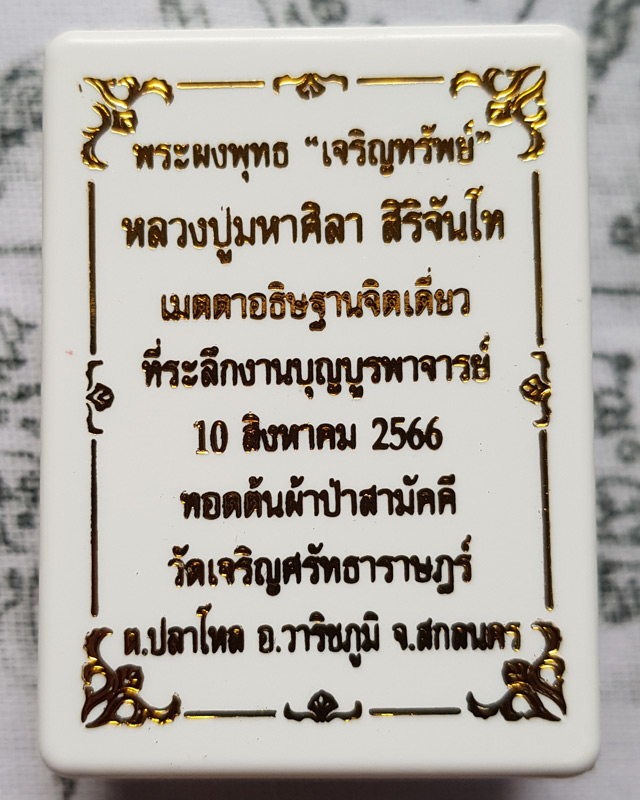 พระผงพุทธ "เจริญทรัพย์"
หลวงปู่มหาศิลา สิริจันโท
เมตตาอธิษฐานจิตเดี่ยว
ที่ระลึกงานบุญบูรพาจารย์
10 สิงหาคม 2566
ทอดต้นผ้าป่าสามัคคี
วัดเจริญศรัทธาราษฎร์
ต.ปลาโหล อ.วาริชภูมิ จ.สกลนคร